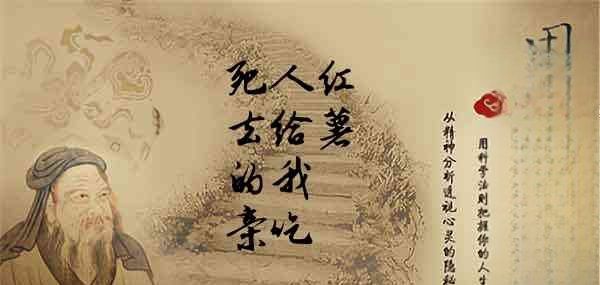 死去的亲
人给我吃
红薯
从精神分析透视心灵的隐秘
用科学法则把握你的人生